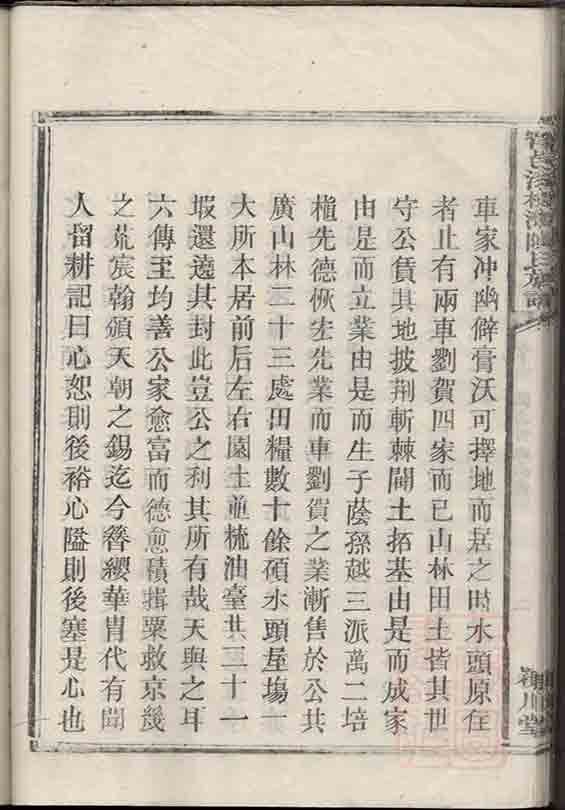 車家冲幽僻膏沃可擇地而居之时水頭原在
者止有兩車劉賀四家而已山林田土皆其世
守公賃其地披荆斬棘闢土拓基由是而成家
由是而立業由是而生子蔭孫越三派萬二培
植先德恢宏先業而車劉賀之業漸售於公共
廣山林二十三處田糧數十餘碩水頭屋塲一
大所本居前后左右園土並梳油臺共三十一
塅還遶其封此豈公之利其所有哉天與之耳
六傳至均善公家愈富而德愈積揖粟救京畿
之荒宸翰頒天朝之錫迄今簪纓華胄代有聞
人留耕記曰心恕則後裕心隘則後塞是心也
氏族譜
潁川堂